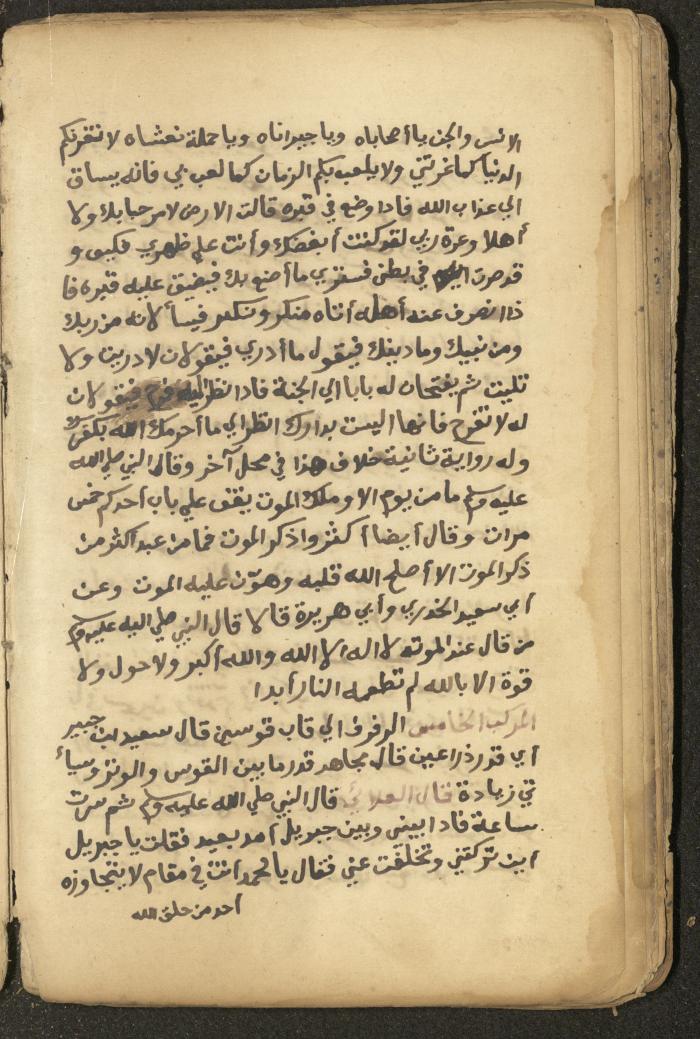 الانس والجن يا أصحاباه ويا جيراناه ويا حملة نعشاه لا تغرنكم
الدنيا كما غرتني ولا يلعب بكم الزمان كما لعب بي فانه يساق
الي عذاب الله فاذا وضع في قبره قالت الارض لا مرحبا بك ولا
أهلا وعزة ربي لقد كنت أبغضك وأنت علي ظهري فكيف و
قد صرت في بطني فسترى ما أصنع بك فيضيق عليه قبره فا
ذا انصرف عنه أهله أتاه منكر ونكير فيسألانه من ربك
ومن نبيك وما دينك فيقول ما أدري فيقولان لا دريت ولا
تليت ثم يفتحان له بابا الي الجنة فاذا نظر اليه فرح فيقولان
له لا تفرح فانها ليست بدارك انظر الي ما أحرمك الله بكفرك
وله رواية ثانية خلاف هذا في محل آخر وقال النبي صلي الله
عليه وسلم ما من يوم الا وملك الموت يقف علي باب أحدكم خمس
مرات وقال أيضا أكثروا ذكر الموت فما من عبد أكثر من
ذكر الموت الا أصلح الله قلبه وهوّن عليه الموت وعن
أبي سعيد الخدري وأبي هريرة قالا قال النبي صلي الله عليه وسلم
من قال عند الموت لا اله الا الله والله أكبر ولا حول ولا
قوة الا بالله لم تطعمه النار أبدا
المركب الخامس الرفرف الي قاب قوسين قال سعيد ابن جبير
أي قدر ذراعين قال مجاهد قدر ما بين القوس والوتر وسيأ
تي زيادة قال العلائي قال النبي صلي الله عليه وسلم ثم سرت
ساعة فاذا بيني وبين جبريل أمد بعيد فقلت يا جبريل
أين تركتني وتخلفت عني فقال يا محمد أنت في مقام لا يتجاوزه
أحد من خلق الله